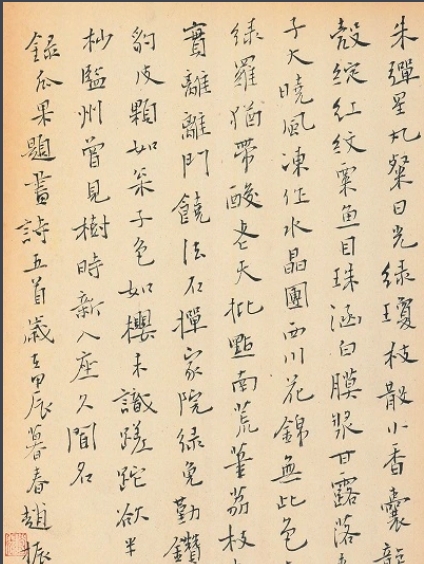 朱彈星丸粲日光綠瓊枝散小香囊龍
殼綻紅紋粟魚目珠涵白膜漿甘露落
子火曉風凍作水晶團西川花錦無此色
綠羅猶帶酸老天批點南荒荔枝
實離離門饒法石家院綠兔勤鑽
豹皮顆如子色如櫻未識蹉跎欲半
杪監州曾見樹時新入座久聞名
録瓜果題畫詩五首歲在甲辰暮春趙振